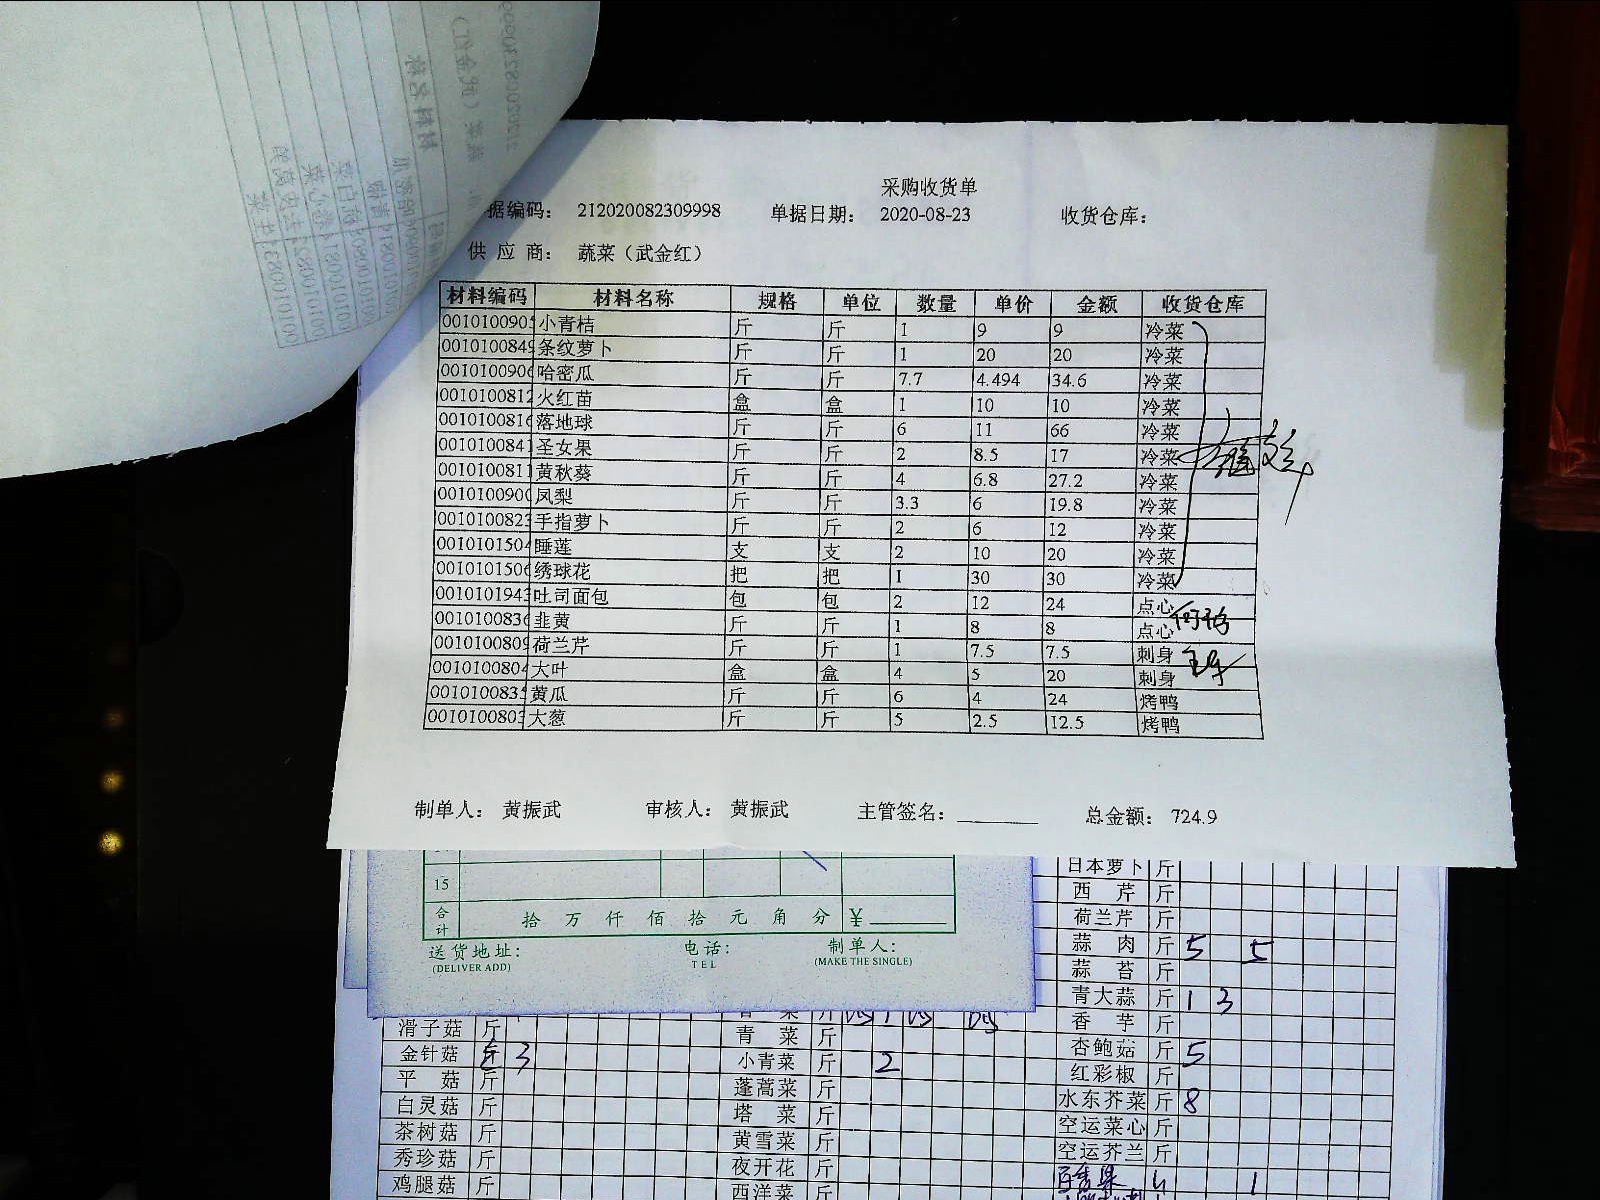 采购收货单
据编码： 212020082309998 单据日期： 2020-08-23 收货仓库：
供 应 商： 蔬菜（武金红）
材料编码 材料名称 规格 单位 数量 单价 金额 收货仓库
0010100905 小青桔 斤 斤 1 9 9 冷菜
0010100849 条纹萝卜 斤 斤 1 20 20 冷菜
0010100906 哈密瓜 斤 斤 7.7 4.494 34.6 冷菜
0010100812 火红苗 盒 盒 1 10 10 冷菜
0010100816 落地球 斤 斤 6 11 66 冷菜
0010100841 圣女果 斤 斤 2 8.5 17 冷菜
0010100811 黄秋葵 斤 斤 4 6.8 27.2 冷菜
0010100900 凤梨 斤 斤 3.3 6 19.8 冷菜
0010100823 手指萝卜 斤 斤 2 6 12 冷菜
0010101504 睡莲 支 支 2 10 20 冷菜
0010101506 绣球花 把 把 1 30 30 冷菜
0010101943 吐司面包 包 包 2 12 24 点心
0010100836 韭黄 斤 斤 1 8 8 点心
0010100809 荷兰芹 斤 斤 1 7.5 7.5 刺身
0010100804 大叶 盒 盒 4 5 20 刺身
0010100835 黄瓜 斤 斤 6 4 24 烤鸭
0010100803 大葱 斤 斤 5 2.5 12.5 烤鸭
制单人： 黄振武 审核人： 黄振武 主管签名： 总金额： 724.9
15
合计 拾 万 仟 佰 拾 元 角 分 ￥
送货地址： 电话： 制单人：
(DELIVER ADD) TEL (MAKE THE SINGLE)
日本萝卜 斤
西 芹 斤
荷兰芹 斤
蒜 肉 斤 5 5
蒜 苔 斤
青大蒜 斤 1 3
香 芋 斤
杏鲍菇 斤 5
红彩椒 斤
水东芥菜 斤 8
空运菜心 斤
空运芥兰 斤
滑子菇 斤
金针菇 3
平 菇 斤
白灵菇 斤
茶树菇 斤
秀珍菇 斤
鸡腿菇 斤
青 菜 斤
小青菜 斤 2
蓬蒿菜 斤
塔 菜 斤
黄雪菜 斤
夜开花 斤
西洋菜 斤